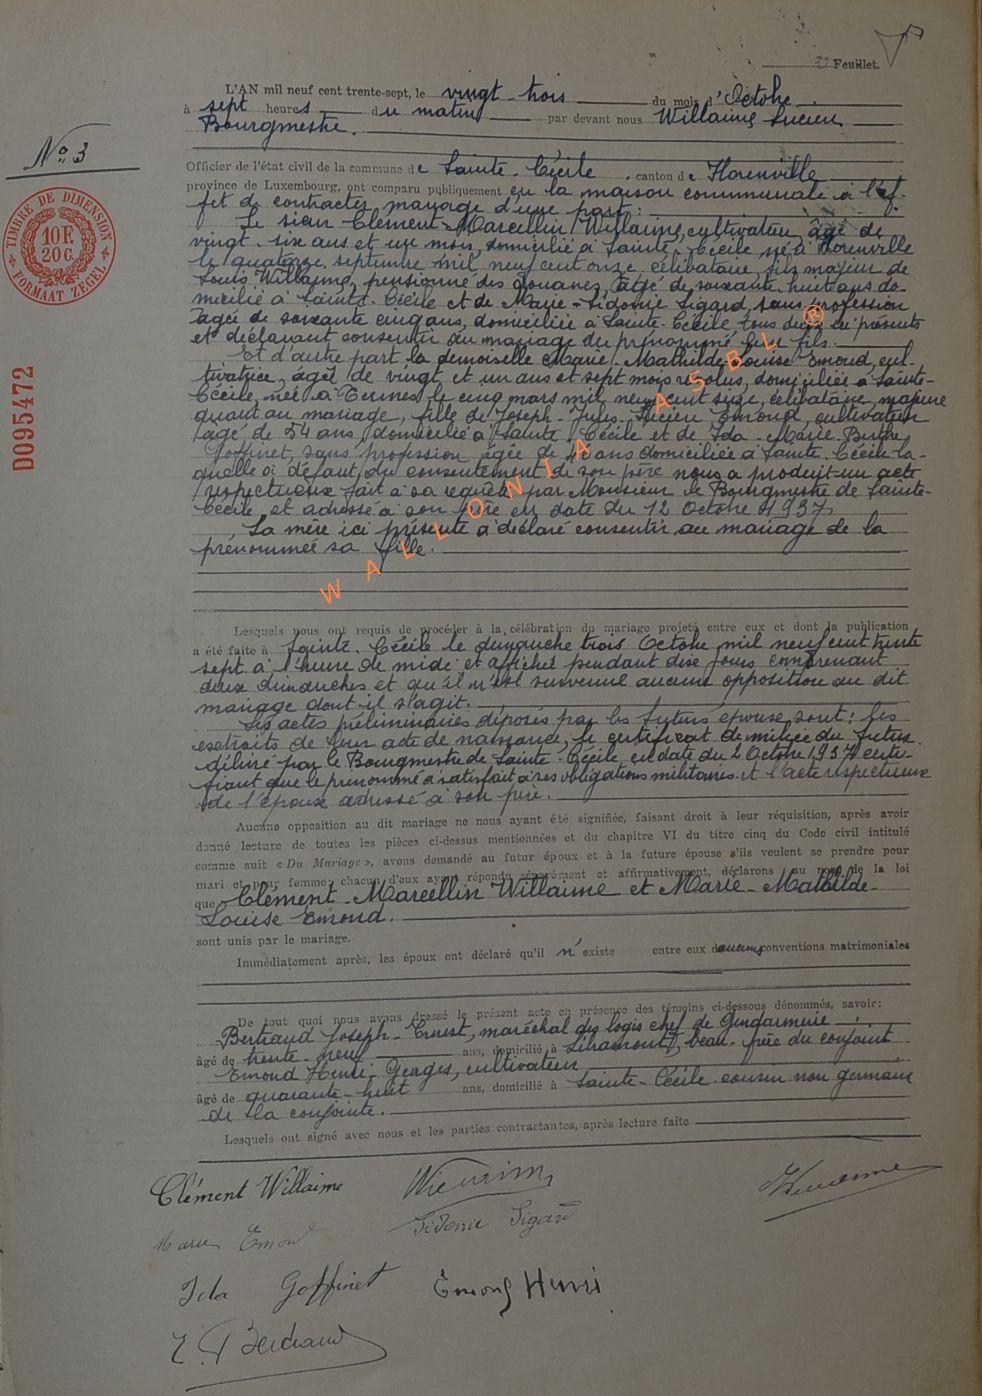 Feuillet.
L'AN mil neuf cent trente-sept, le vingt-trois du mois d'Octobre
à sept heures du matin par devant nous Willaime Lucien
Bourgmestre.
No 3
Officier de l'état civil de la commune de Sainte-Cécile, canton de Florenville
province de Luxembourg, ont comparu publiquement en la maison communale à l'ef-
fet de contracter mariage d'une part:
Le sieur Clément-Marcellin Willaime, cultivateur, âgé de
vingt-six ans et un mois, domicilié à Sainte-Cécile né à Florenville
le quatorze septembre mil neuf cent onze célibataire, fils majeur de
Louis Willaime, pensionné des douanes, âgé de soixante-huit ans do-
micilié à Sainte-Cécile et de Marie-Sidonie Sigard, sans profession
âgée de soixante cinq ans, domiciliée à Sainte-Cécile tous deux ici présents
et déclarant consentir au mariage du prénommé leur fils.
Et d'autre part la demoiselle Marie-Mathilde-Louise Emond, cul-
tivatrice, âgée de vingt et un ans et sept mois résolus, domiciliée à Sainte-
Cécile, née à Termes le cinq mars mil neuf cent seize, célibataire, majeure
quant au mariage, fille de Joseph-Jules-Lucien Emond, cultivateur
âgé de 54 ans, domicilié à Sainte-Cécile et de Ida-Marie-Berthe
Goffinet, sans profession âgée de ans domiciliée à Sainte-Cécile la-
quelle à défaut du consentement de son père nous a produit un acte
respectueux fait à sa requête par Monsieur le Bourgmestre de Sainte-
Cécile et adressé à son père en date du 12 Octobre 1937.
La mère ici présente a déclaré consentir au mariage de la
prénommée sa fille.
WALLONIA ASBL ®
TIMBRE DE DIMENSION
10 F.
20 C.
FORMAAT ZEGEL
D095472
Lesquels nous ont requis de procéder à la célébration du mariage projeté entre eux et dont la publication
a été faite à Sainte-Cécile le dimanche trois Octobre mil neuf cent trente
sept à l'heure de midi et affichée pendant dix jours comprenant
deux dimanches et qu'il n'est survenue aucune opposition au dit
mariage dont il s'agit.
Les actes préliminaires déposés par les futurs époux sont: les
extraits de leur acte de naissance, le certificat de milice du futur
délivré par le Bourgmestre de Sainte-Cécile, en date du 2 Octobre 1937 certi-
fiant que le prénommé a satisfait à ses obligations militaires et l'acte respectueux
de l'épouse adressé à son père.
Aucune opposition au dit mariage ne nous ayant été signifiée, faisant droit à leur réquisition, après avoir
donné lecture de toutes les pièces ci-dessus mentionnées et du chapitre VI du titre cinq du Code civil intitulé
comme suit « Du Mariage », avons demandé au futur époux et à la future épouse s'ils veulent se prendre pour
mari et pour femme; chacun d'eux ayant répondu séparément et affirmativement, déclarons au nom de la loi
que Clément-Marcellin Willaime et Marie-Mathilde-
Louise Emond.
sont unis par le mariage.
Immédiatement après, les époux ont déclaré qu'il n'existe entre eux aucunes conventions matrimoniales
De tout quoi nous avons dressé le présent acte en présence des témoins ci-dessous dénommés, savoir:
Bertrand Joseph-Ernest, maréchal des logis chef de Gendarmerie
âgé de trente-neuf ans, domicilié à Libramont, beau-frère du conjoint
Emond Henri-Georges, cultivateur
âgé de quarante-huit ans, domicilié à Sainte-Cécile cousin non germain
de la conjointe.
Lesquels ont signé avec nous et les parties contractantes, après lecture faite
Clément Willaime Willaime Willaime
Marie Emond Sidonie Sigard
Ida Goffinet Emond Henri
Bertrand